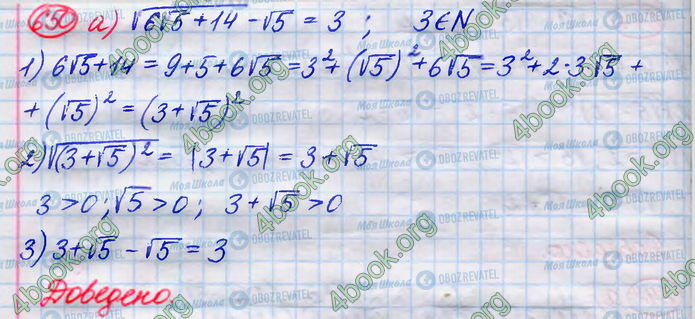 650 а) √(6√5+14) - √5 = 3 ; 3∈N
1) 6√5+14 = 9+5+6√5 = 3²+(√5)²+6√5 = 3²+2·3√5 +
+ (√5)² = (3+√5)²
2) √((3+√5)²) = |3+√5| = 3+√5
3>0; √5>0; 3+√5>0
3) 3+√5 - √5 = 3
Доведено
4book.org
Моя Школа OBOZREVATEL